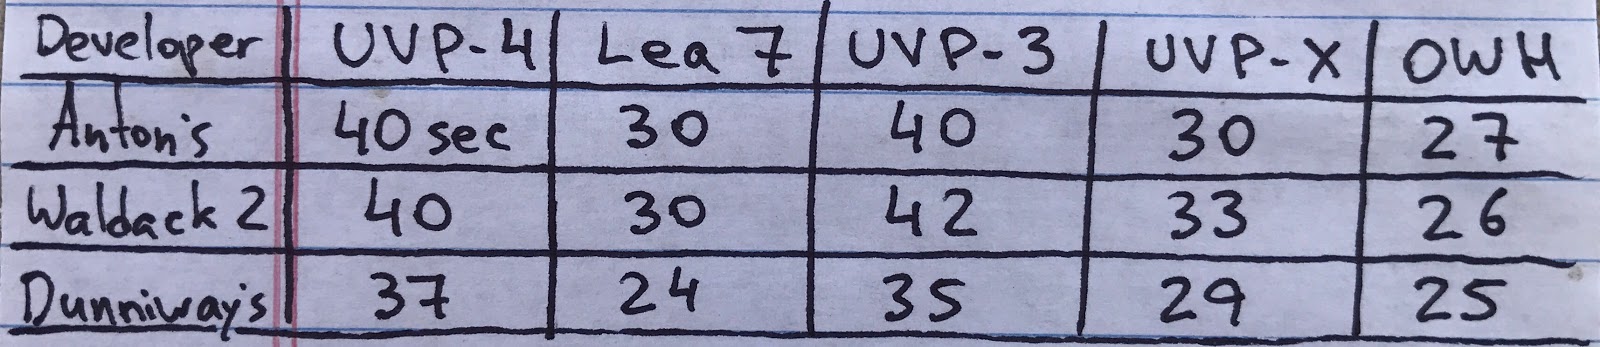 Developer UVP-4 Lea 7 UVP-3 UVP-X OWH
Anton's 40 sec 30 40 30 27
Waldack 2 40 30 42 33 26
Dunniway's 37 24 35 29 25